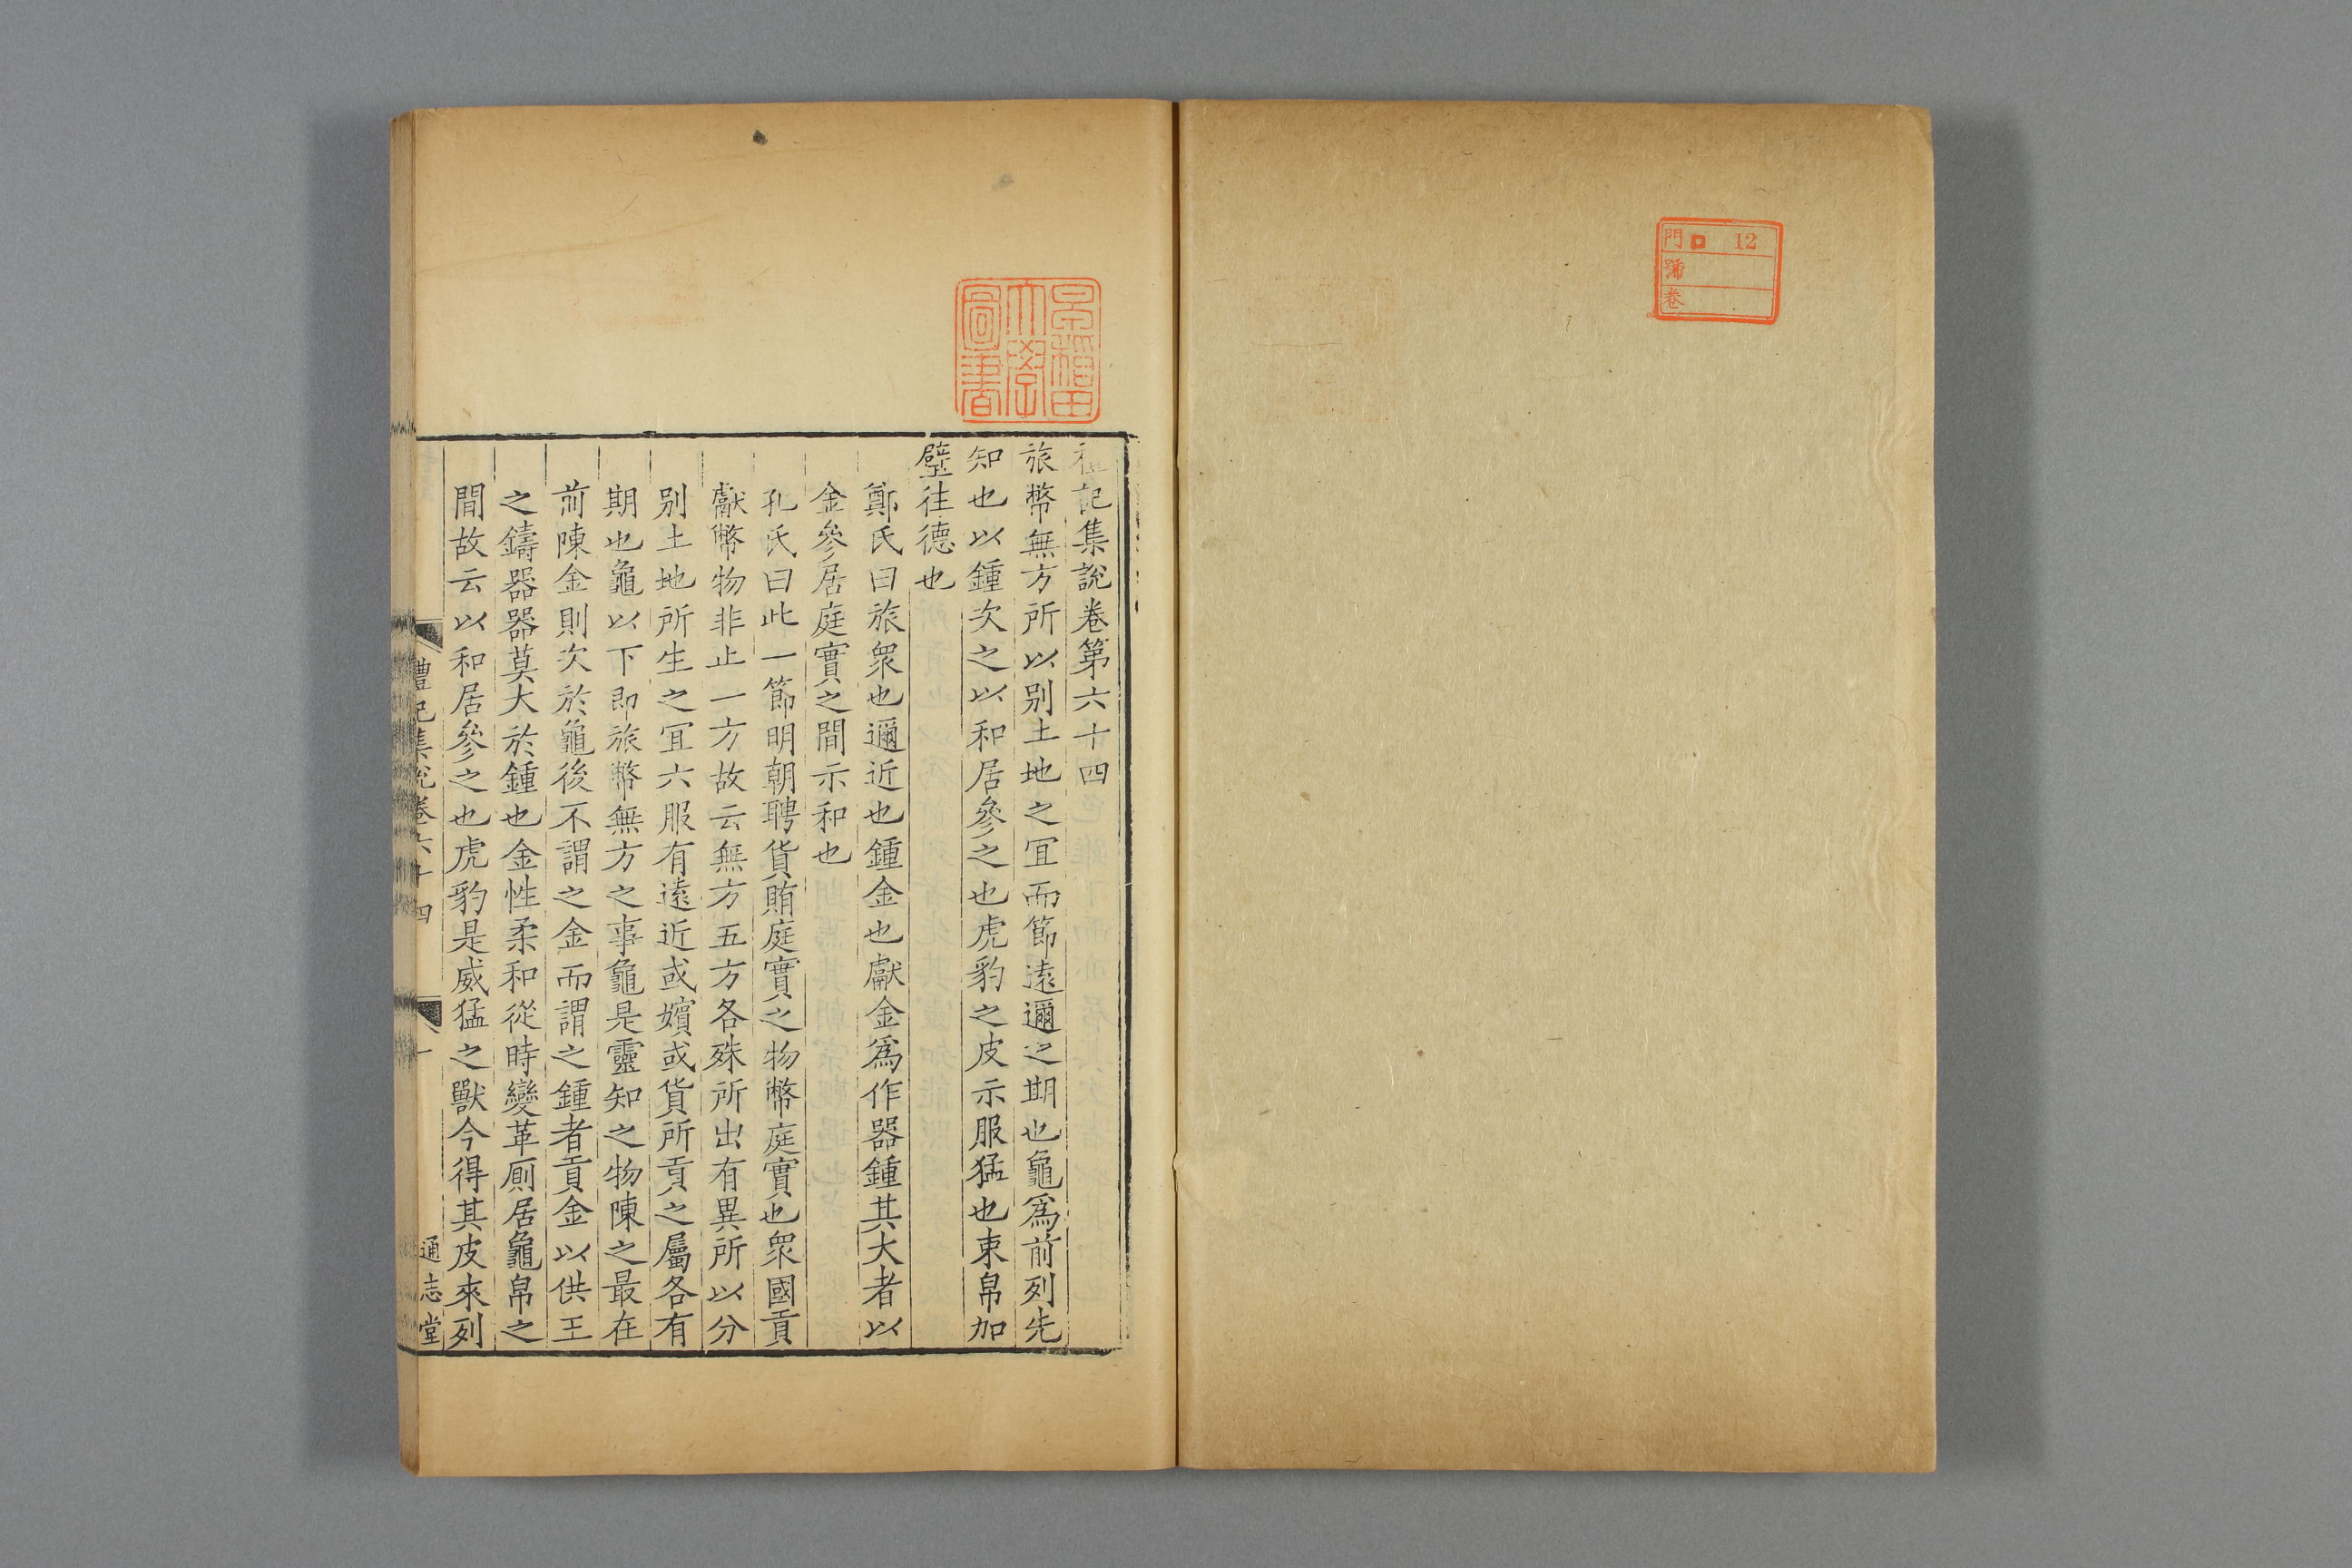 門 ロ 12
號
卷
早稻田
大學
圖書
礼記集說卷第六十四
旅幣無方所以别土地之冝而節遠邇之期也龜爲前列先
知也以鍾次之以和居參之也虎豹之皮示服猛也束帛加
璧往德也
鄭氏曰旅衆也邇近也鍾金也獻金爲作器鍾其大者以
金參居庭實之間示和也
孔氏曰此一節明朝聘貨賄庭實之物幣庭實也衆國貢
獻幣物非止一方故云無方五方各殊所出有異所以分
别土地所生之冝六服有遠近或嬪或貨所貢之屬各有
期也龜以下即旅幣無方之事龜是靈知之物陳之最在
前陳金則次於龜後不謂之金而謂之鍾者貢金以供王
之鑄器器莫大於鍾也金性柔和從時變革厠居龜帛之
間故云以和居參之也虎豹是威猛之獸今得其皮來列
禮記集說卷六十四 一 通志堂